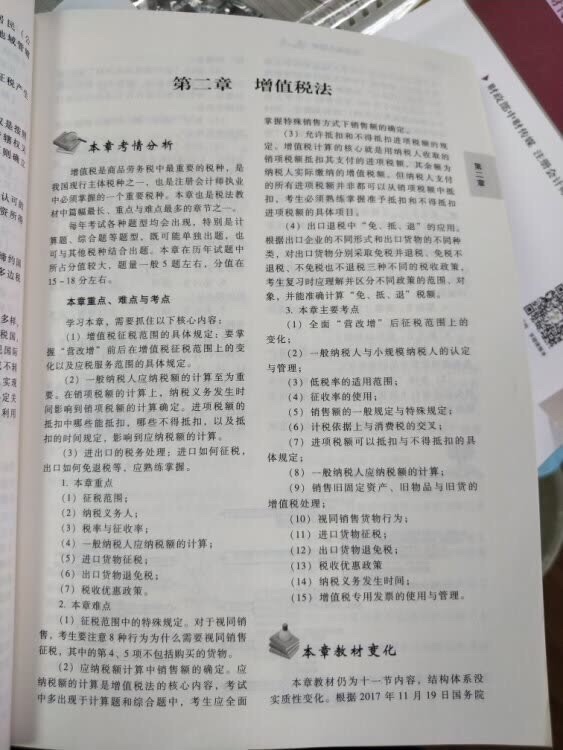 第二章 增值税法
本章考情分析
增值税是商品劳务税中最重要的税种，是
我国现行主体税种之一，也是注册会计师执业
中必须掌握的一个重要税种。本章也是税法教
材中篇幅最长、重点与难点最多的章节之一。
每年考试各种题型均会出现，特别是计
算题、综合题等题型，既可能单独出题，也
可与其他税种结合出题。本章在历年试题中
所占分值较大，题量一般5题左右，分值在
15－18分左右。
本章重点、难点与考点
学习本章，需要抓住以下核心内容：
（1）增值税征税范围的具体规定；要掌
握“营改增”前后在增值税征税范围上的变
化以及应税服务范围的具体规定。
（2）一般纳税人应纳税额的计算至为重
要。在销项税额的计算上，纳税义务发生时
间影响到销项税额的计算确定。进项税额的
抵扣中哪些能抵扣，哪些不得抵扣，以及抵
扣的时间规定，影响到应纳税额的计算。
（3）进出口的税务处理；进口如何征税，
出口如何免退税等，应熟练掌握。
1. 本章重点
（1）征税范围；
（2）纳税义务人；
（3）税率与征收率；
（4）一般纳税人应纳税额的计算；
（5）进口货物征税；
（6）出口货物退免税；
（7）税收优惠政策。
2. 本章难点
（1）征税范围中的特殊规定。对于视同销
售，考生要注意8种行为为什么需要视同销售
征税，其中的第4、5项不包括购买的货物。
（2）应纳税额计算中销售额的确定。应
纳税额的计算是增值税法的核心内容，考试
中多出现于计算题和综合题中，考生应全面
掌握特殊销售方式下销售额的确定。
（3）允许抵扣和不得抵扣进项税额的规
定。增值税计算的核心就是用纳税人收取的
销项税额抵扣其支付的进项税额，其余额为
纳税人实际缴纳的增值税额。但纳税人支付
的所有进项税额并非都可以从销项税额中抵
扣，考生必须熟练掌握准予抵扣和不得抵扣
进项税额的具体项目。
（4）出口退税中“免、抵、退”的应用。
根据出口企业的不同形式和出口货物的不同种
类，对出口货物分别采取免税并退税、免税不
退税、不免税也不退税三种不同的税收政策，
考生复习时应理解并区分不同政策的范围、对
象，并能准确计算“免、抵、退”税额。
3. 本章主要考点
（1）全面“营改增”后征税范围上的
变化；
（2）一般纳税人与小规模纳税人的认定
与管理；
（3）低税率的适用范围；
（4）征收率的使用；
（5）销售额的一般规定与特殊规定；
（6）计税依据上与消费税的交叉；
（7）进项税额可以抵扣与不得抵扣的具
体规定；
（8）一般纳税人应纳税额的计算；
（9）销售旧固定资产、旧物品与旧货的
增值税处理；
（10）视同销售货物行为；
（11）进口货物征税；
（12）出口货物退免税；
（13）税收优惠政策
（14）纳税义务发生时间；
（15）增值税专用发票的使用与管理。
本章教材变化
本章教材仍为十一节内容，结构体系没
实质性变化。根据2017年11月19日国务院
第二章
财政部中财传媒 注册会计